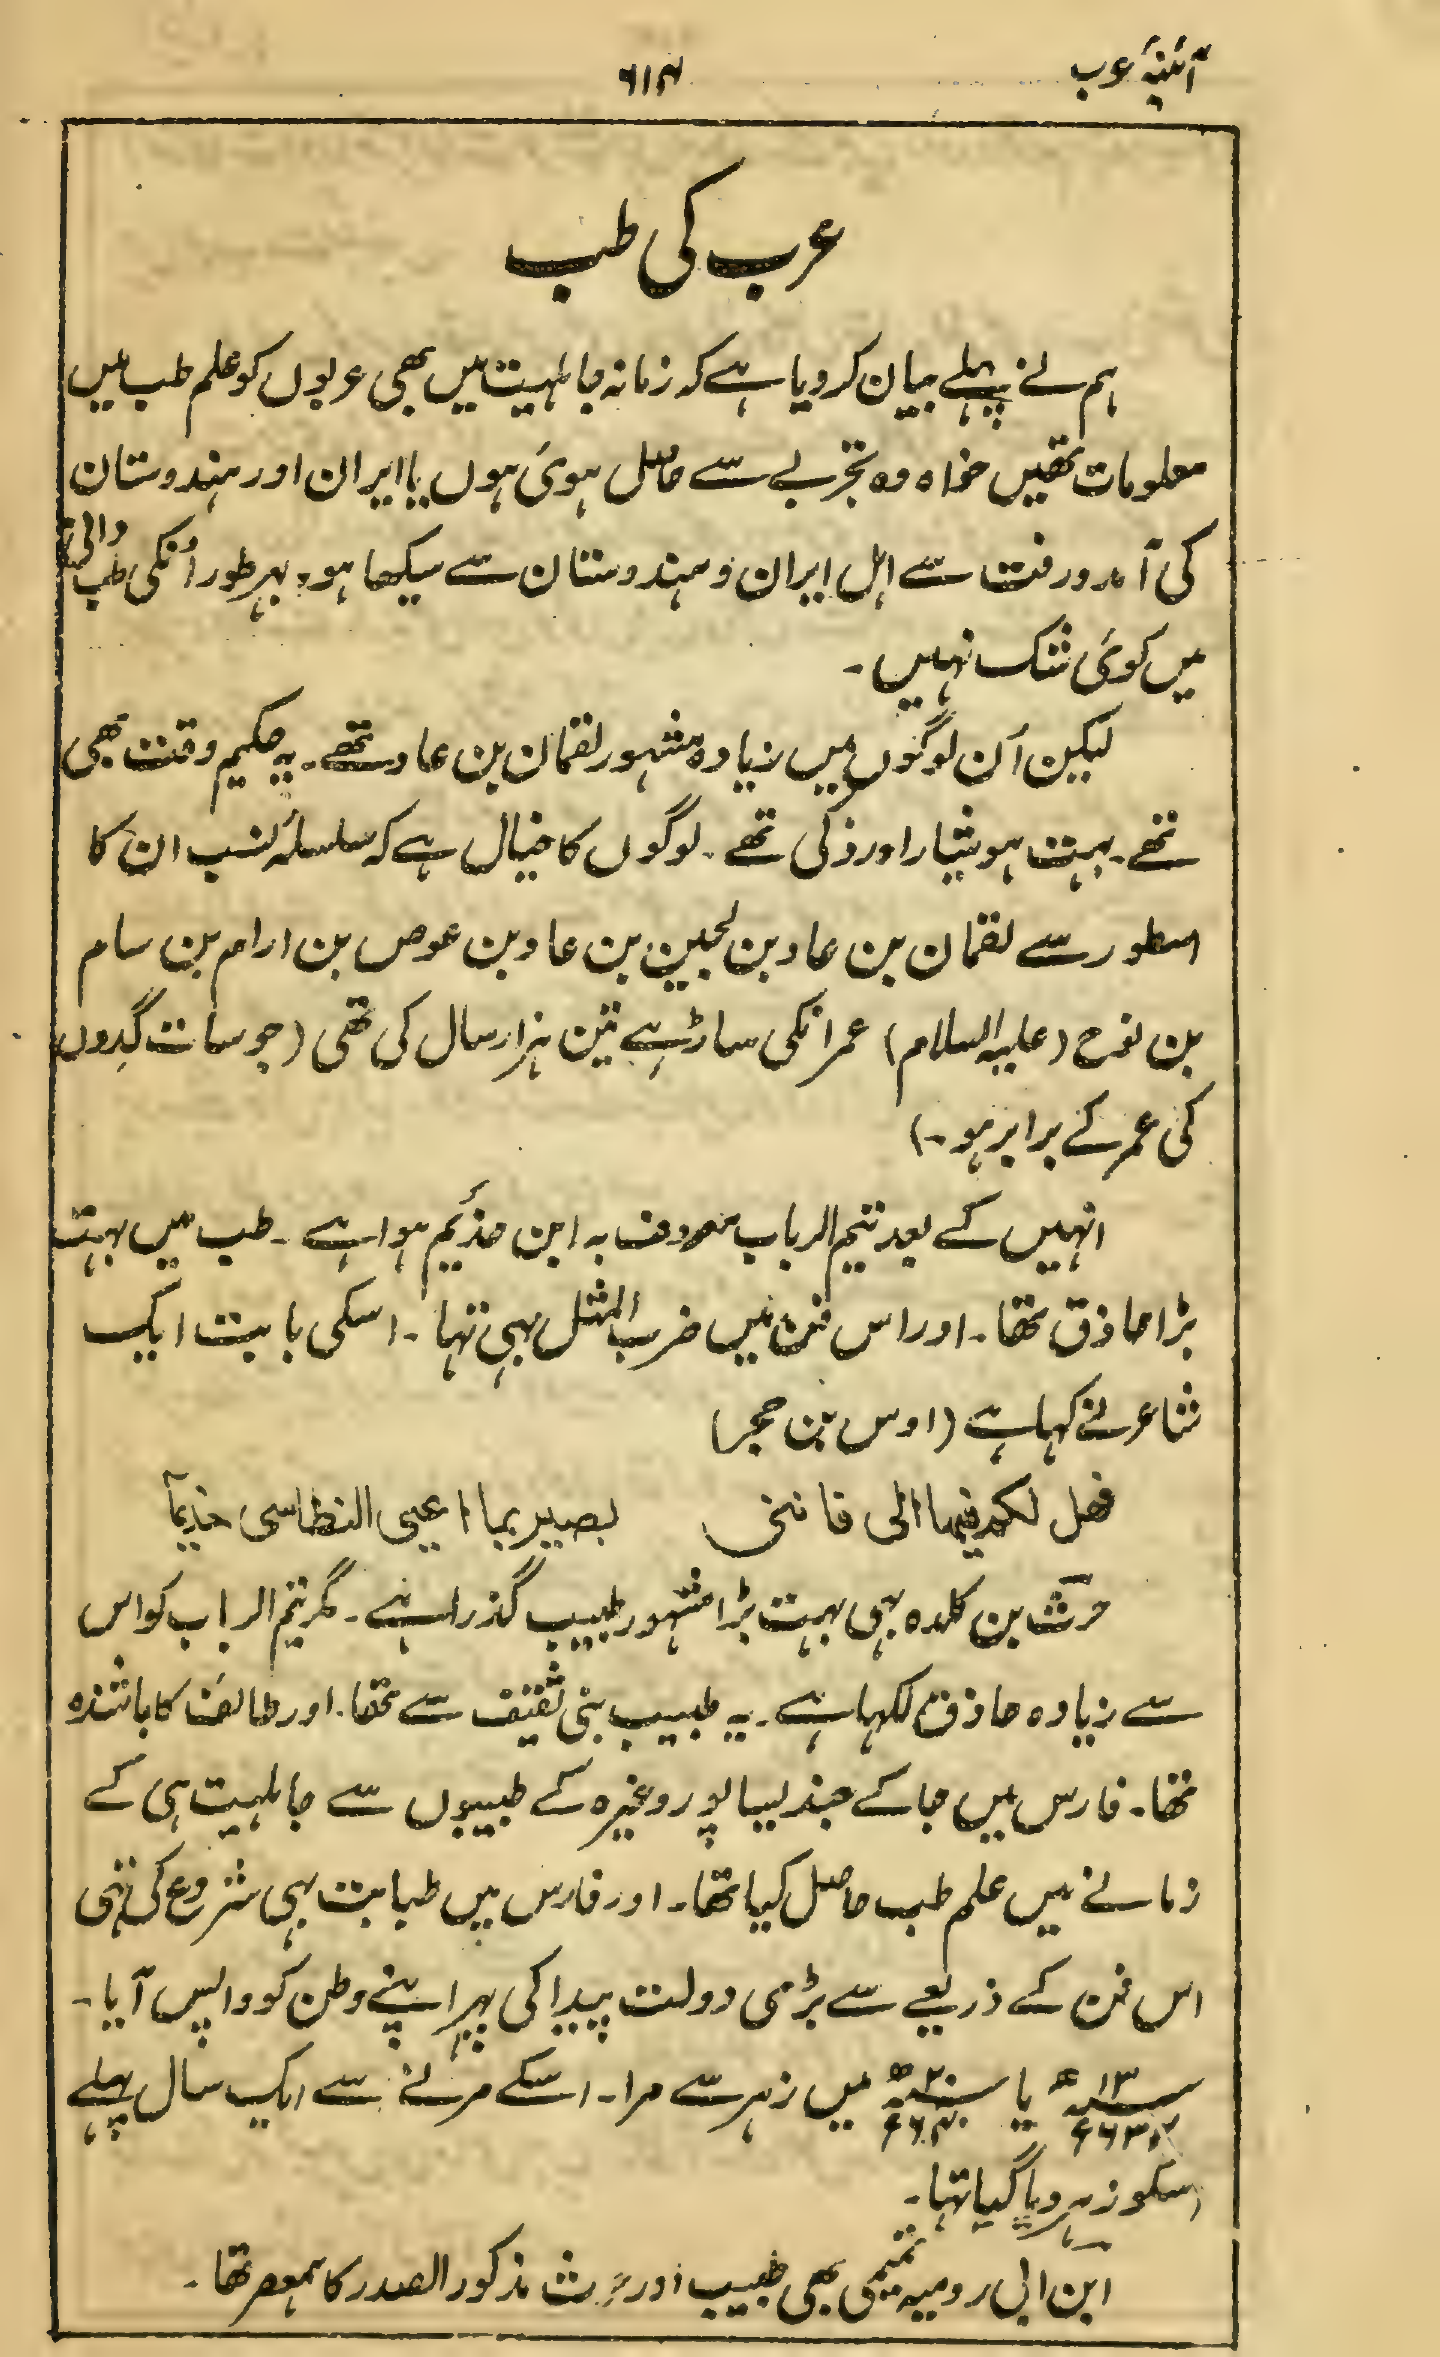 آئینۂ عرب
۶۱۴
عرب کی طب
ہم نے پہلے بیان کردیا ہے کہ زمانہ جاہلیت میں بھی عربوں کو علم طب میں
معلومات تھیں خواہ وہ تجربے سے حاصل ہوئی ہوں یا ایران اور ہندوستان
کی آمد ورفت سے اہل ایران و ہندوستان سے سیکھا ہو۔ بہرطور اُنکی طب
میں کوئی شک نہیں۔
لیکن اُن لوگوں میں زیادہ مشہور لقمان بن عاد تھے۔ یہ حکیم وقت بھی
تھے۔ بہت ہوشیار اور ذکی تھے۔ لوگوں کا خیال ہے کہ سلسلۂ نسب ان کا
اسطور سے لقمان بن عاد بن لجین بن عاد بن عوص بن ارام بن سام
بن نوح (علیہ السلام) عمر انکی ساڑہے تین ہزار سال کی تھی (جو سات گِدوں
کی عمر کے برابر ہو۔)
انہیں کے بعد تیم الرباب معروف بہ ابن حذیم ہوا ہے۔ طب میں بہت
بڑا حاذق تھا۔ اور اس فن میں ضرب المثل بہی تہا۔ اسکی بابت ایک
شاعر نے کہا ہے (اوس بن حجر)
فهل لكم فيها الى فانني بصير بما اعيى النطاسى حذيمآ
حرث بن کلدہ بہی بہت بڑا مشہور طبیب گذرا ہے۔ مگر تیم الرباب کو اس
سے زیادہ حاذق لکہا ہے۔ یہ طبیب بنی ثقیف سے تھا۔ اور طائف کا باشندہ
تھا۔ فارس میں جا کے جندیسا پور وغیرہ کے طبیبوں سے جاہلیت ہی کے
زمانے میں علم طب حاصل کیا تھا۔ اور فارس میں طبابت بہی شروع کی تہی
اس فن کے ذریعے سے بڑی دولت پیدا کی پہر اپنے وطن کو واپس آیا۔
سنہ ۱۳ھ یا سنہ ۲۰ھ میں زہر سے مرا۔ اسکے مرنے سے ایک سال پہلے
اسکو زہر دیا گیا تہا۔
ابن ابی رومیہ تمیمی بھی طبیب اور حرث مذکور الصدر کا ہمعصر تھا۔